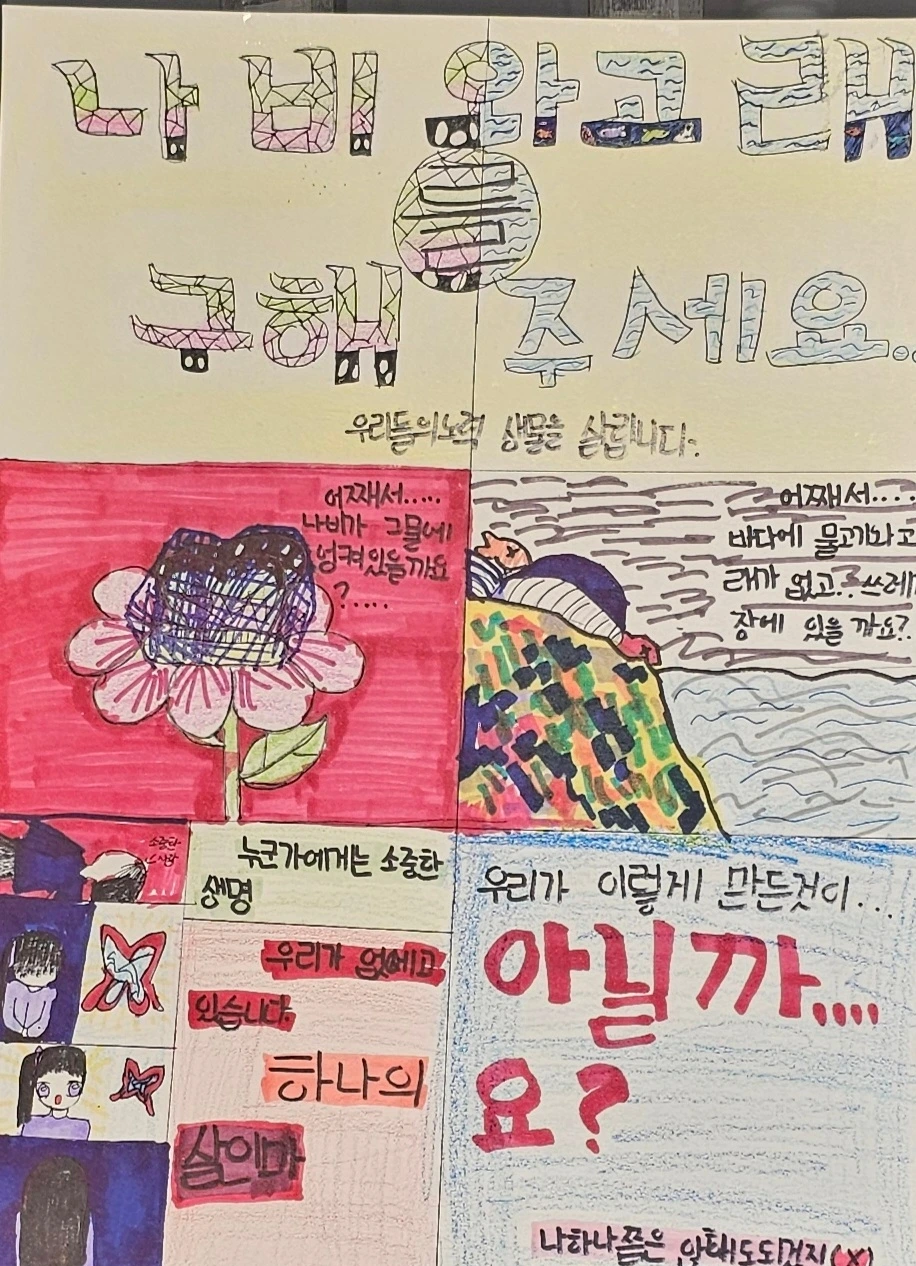 나비와고래
를
구해주세요..
우리들의노력 생물을 살립니다.
어째서.....
나비가 그물에
엉켜있을까요
?.....
어째서....
바다에 물고기와고
래가 없고..? 쓰레기
장에 있을까요?
소중한
누군가에게는 소중한
생명
우리가 없에고
있습니다.
하나의
살인마
우리가 이렇게 만든것이...
아닐까....
요?
나하나쯤은 안해도되겠지(X)